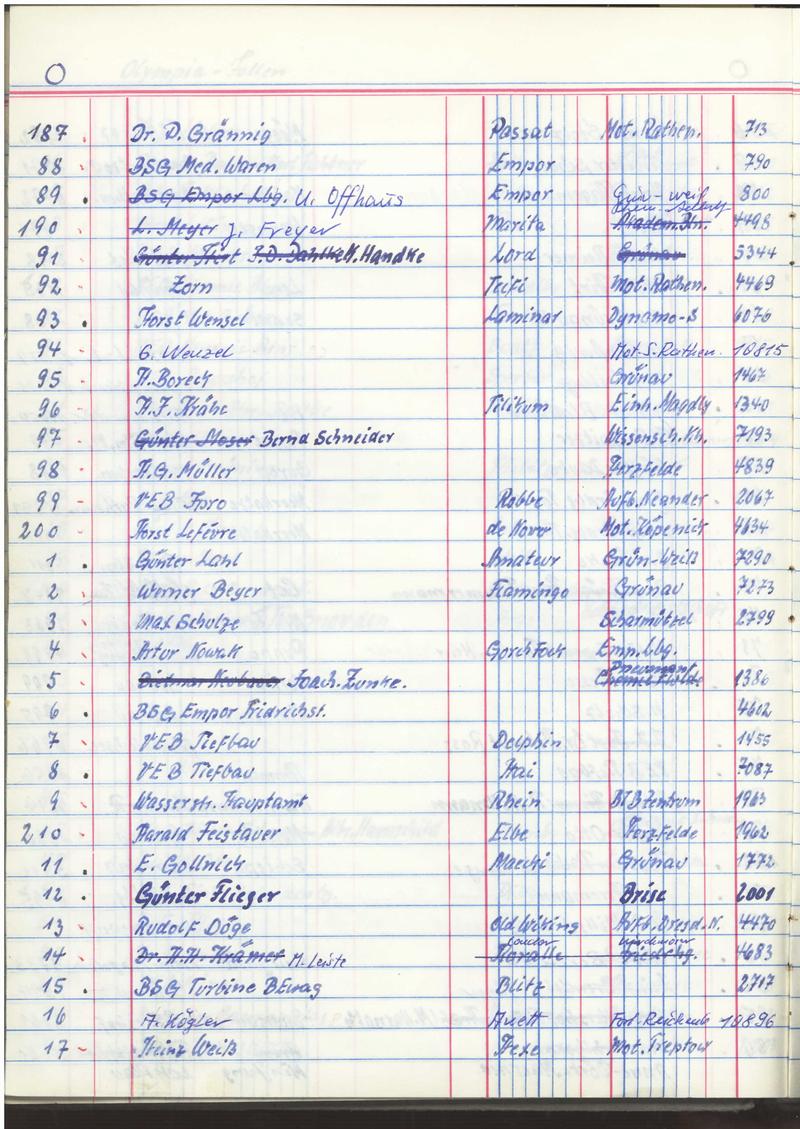 O
187 Dr. D. Grännig Passat Mot. Rathen. 713
88 BSG Med. Waren Empor 790
89 BSG Empor Lbg. U. Offhaus Empor Grün-weiß 800
190 L. Meyer J. Freyer Marita Akadem. Bln. 4498
91 Günter Flirt J.D. Dahlke K. Handke Lord Grünau 5344
92 Zorn Teifi Mot. Rathen. 4469
93 Horst Wensel Laminar Dynamo-S 6076
94 G. Wenzel Mot-S-Rathen. 10815
95 H. Boreck Grünau 1467
96 H.F. Krähe Tilikum Einh. Magdbg. 1340
97 Günter Moser Bernd Schneider Wissensch. Kh. 7193
98 H.G. Müller Herzfelde 4839
99 VEB Ipro Robbe Aufb. Neander 2067
200 Horst Lefévre de Novo Mot. Köpenick 4634
1 Günter Lahl Amateur Grün-Weiß 7290
2 Werner Beyer Flamingo Grünau 7273
3 Max Schulze Scharmützel 2799
4 Artur Nowak Gorch Fock Emp. Lbg.
5 Dietmar Neubauer Joach. Zunke. 1386
6 BSG Empor Fridrichst. 4602
7 VEB Tiefbau Delphin 1455
8 VEB Tiefbau Hai 7087
9 Wasserstr. Hauptamt Rhein BVB Zentrum 1963
210 Harald Feistauer Elbe Herzfelde 1962
11 E. Gollnick Maechi Grünau 1772
12 Günter Flieger Brise 2001
13 Rudolf Döge Old Wiking Aufb. Dresd. N. 4470
14 Dr. H.H. Krämer M. Leiste Koralle 4683
15 BSG Turbine BEWAG Blitz 2717
16 A. Kögler Anett 10896
17 Heinz Weiß Hexe Mot. Treptow